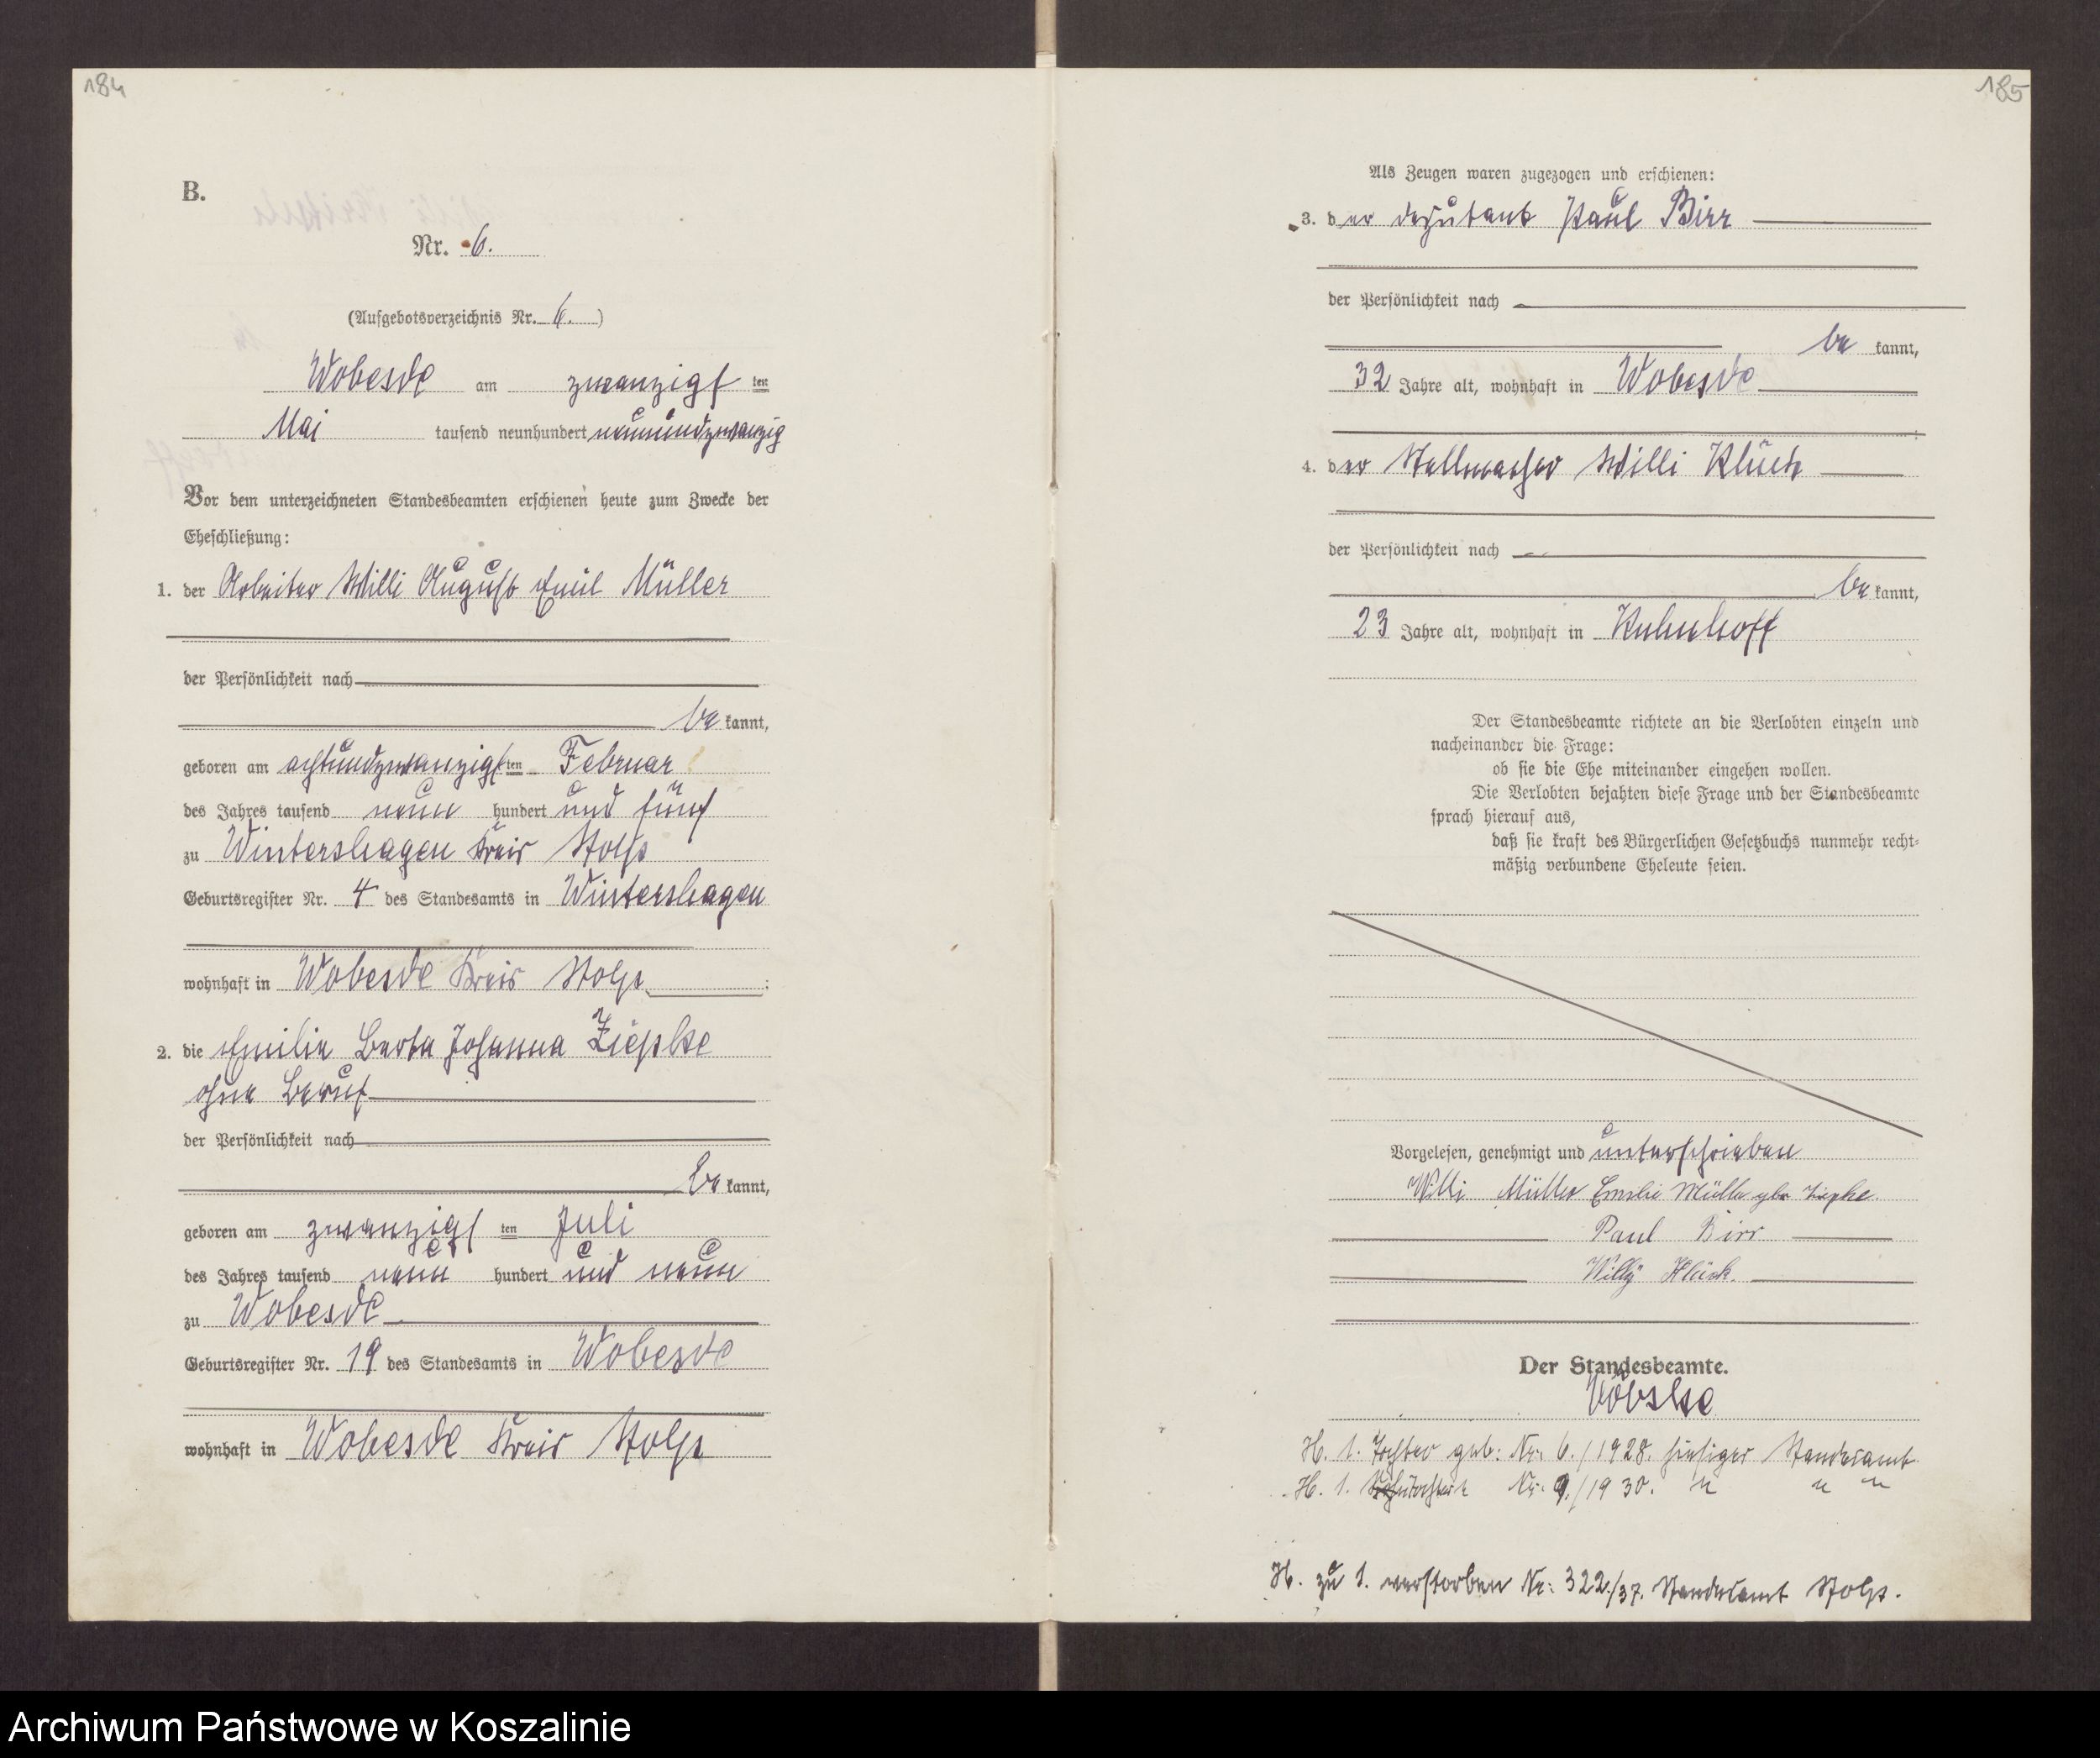 184
B.
Nr. 6.
(Aufgebotsverzeichnis Nr. 6.)
Wobesde am zwanzigsten
Mai tausend neunhundert neunundzwanzig
Vor dem unterzeichneten Standesbeamten erschienen heute zum Zwecke der
Eheschließung:
1. der Arbeiter Willi August Emil Müller
der Persönlichkeit nach
bekannt,
geboren am achtundzwanzigsten Februar
des Jahres tausend neun hundert und fünf
zu Wintershagen Kreis Stolp
Geburtsregister Nr. 4 des Standesamts in Wintershagen
wohnhaft in Wobesde Kreis Stolp ;
2. die Emilie Berta Johanna Ziepke
ohne Beruf
der Persönlichkeit nach
bekannt,
geboren am zwanzigsten Juli
des Jahres tausend neun hundert und neun
zu Wobesde
Geburtsregister Nr. 19 des Standesamts in Wobesde
wohnhaft in Wobesde Kreis Stolp
185
Als Zeugen waren zugezogen und erschienen:
3. der Deputant Paul Birr
der Persönlichkeit nach
bekannt,
32 Jahre alt, wohnhaft in Wobesde
;
4. der Stellmacher Willi Klück
der Persönlichkeit nach
bekannt,
23 Jahre alt, wohnhaft in Kuhnhoff
Der Standesbeamte richtete an die Verlobten einzeln und
nacheinander die Frage:
ob sie die Ehe miteinander eingehen wollen.
Die Verlobten bejahten diese Frage und der Standesbeamte
sprach hierauf aus,
daß sie kraft des Bürgerlichen Gesetzbuchs nunmehr recht-
mäßig verbundene Eheleute seien.
Vorgelesen, genehmigt und unterschrieben
Willi Müller Emilie Müller geb. Ziepke.
Paul Birr
Willy Klück.
Der Standesbeamte.
H. 1. Tochter geb: Nr. 6./1928. hiesiger Standesamt
H. 1. Nr. 9./1930. " " "
H. zu 1. verstorben Nr: 322./37. Standesamt Stolp.
Archiwum Państwowe w Koszalinie